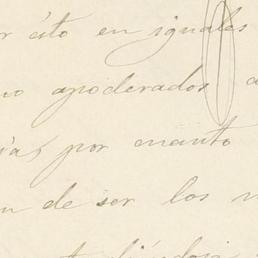 r ésto en iguales
no apoderados a
ía, por cuanto
n de ser los